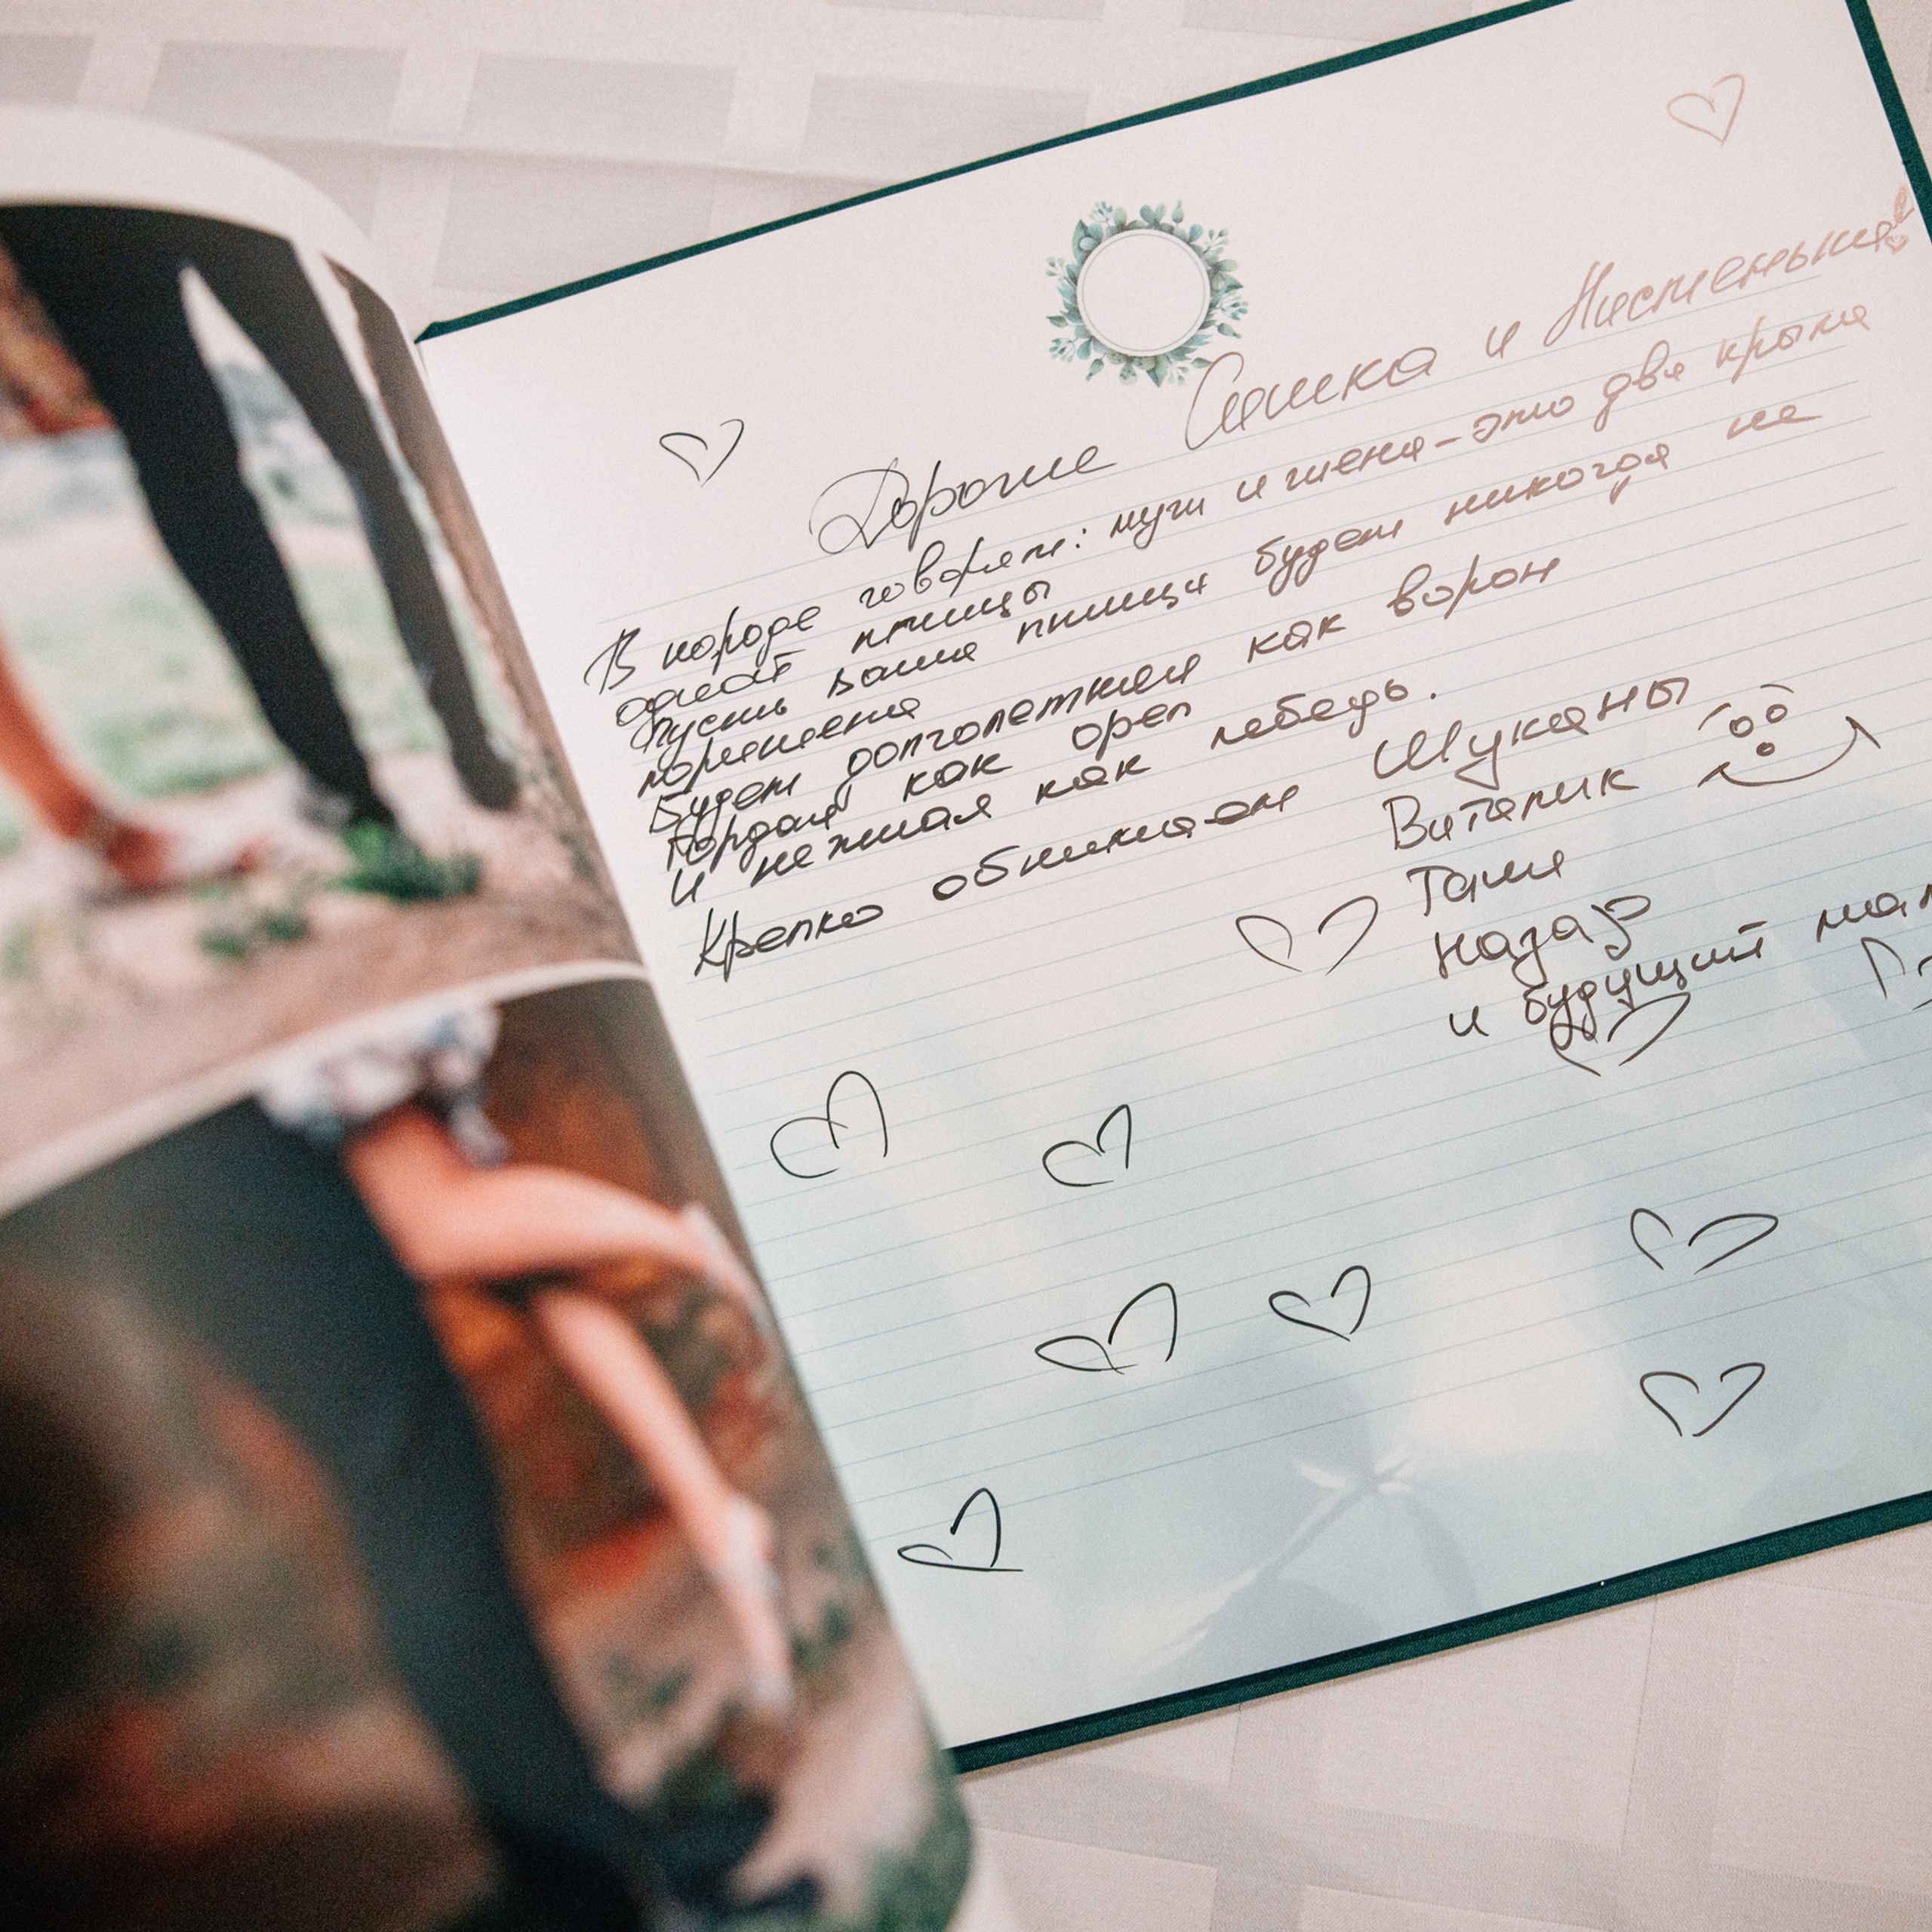 Дорогие Сашка и Настенька!
В народе говорят: муж и жена - это два крыла
одной птицы
Пусть ваша птица будет никогда не
Будет долголетней как ворон
Гордой как орел
и нежная как лебедь.
Крепко обнимаем Шуканы
Виталик
Таня
Назар
и будущий